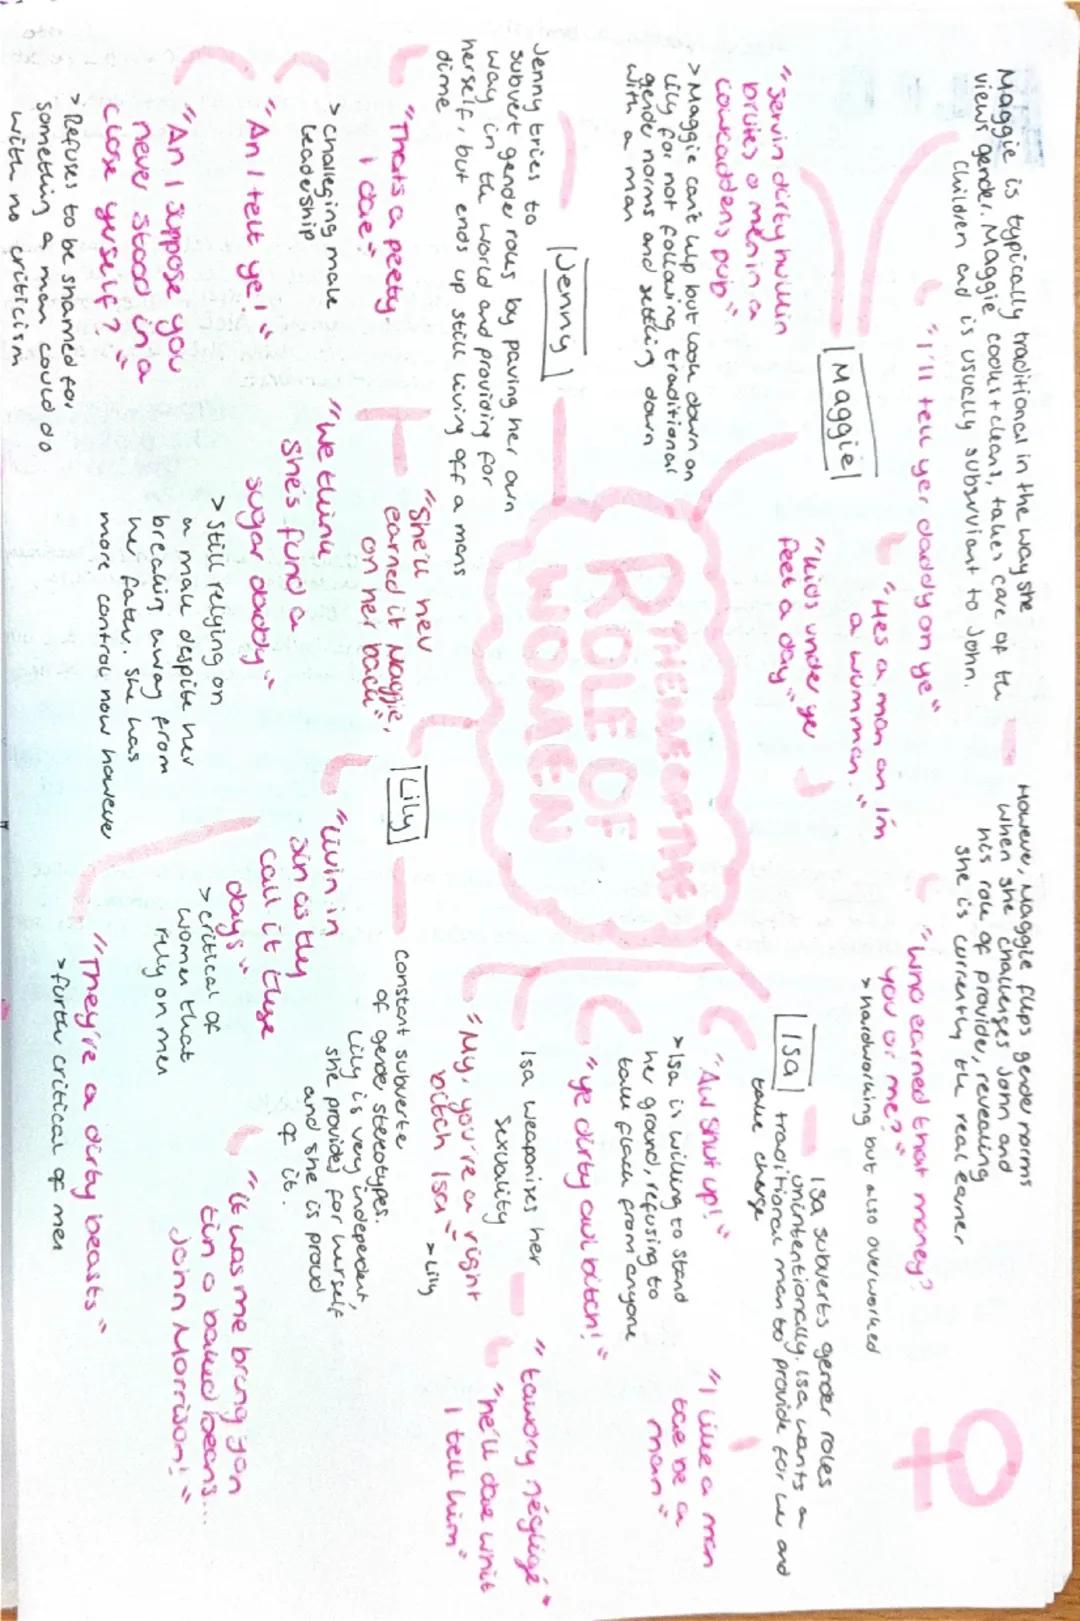 THEME OF THE
ROLE OF
WOMEN
Maggie
Maggie is typically traditional in the way she
views gender. Maggie cooks + cleans, takes care of the
children and is usually subservient to John.
"I'll tell yer daddy on ye"
"Hes a man an I'm
a wumman."
"kids under yer
feet a day"
"servin dirty hullin
brutes o men in a
cowcaddens pub"
>Maggie can't help but look down on
Lily for not following traditional
gender norms and settling down
with a man
However, Maggie flips gender norms
when she challenges John and
his role of provider, revealing
she is currently the real earner
"Who earned that money?
you or me?"
>hardworking but also overworked
Isa
Isa subverts gender roles
unintentionally. Isa wants a
traditional man to provide for her and
take charge
"Aw shut up!"
>Isa is willing to stand
her ground, refusing to
take flack from anyone
"ye dirty owl bitch!"
"I like a man
tae be a
man"
Isa weaponises her
sexuality
"tawdry négligé"
"he'll dae whit
I tell him"
"My, you're a right
bitch Isa"
>Lily
Jenny
Jenny tries to
subvert gender roles by paving her own
way in the world and providing for
herself, but ends up still living off a mans
dime
"Thats a peety
I dae"
>challeging male
leadership
"An I telt ye!"
"An I suppose you
never stood in a
close yerself?"
>Refuses to be shamed for
something a man could do
with no criticism
"She'll nev
earned it Maggie,
on her back"
"We think
she's fund a
sugar daddy"
>Still relying on
a male despite her
breaking away from
her father. She has
more control now however
Lily
Constant subverter
of gender stereotypes.
Lily is very independent,
she provides for herself
and she is proud
of it.
"Livin in
sin as they
call it these
days"
>critical of
women that
rely on men
"They're a dirty beasts"
>further critical of men
"it was me brung yon
tin o baked beans...
John Morrison!"